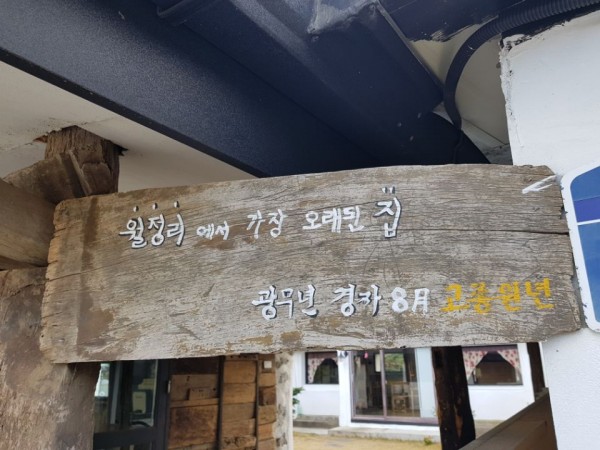 월정리 에서 가장 오래된 집
광무년 경자 8月 고종원년